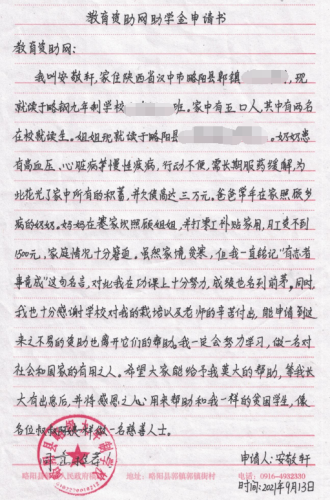 教育资助网助学金申请书
教育资助网：
我叫安敬轩，家住陕西省汉中市略阳县郭镇 现
就读于略钢九年制学校 班。家中有五口人，其中有两名
在校就读生。姐姐现就读于略阳县 奶奶患
有高血压、心脏病等慢性疾病，行动不便，需长期服药缓解，为
此花光了家中所有的积蓄，并欠债高达三万元。爸爸常年在家照顾多
病的奶奶。妈妈在家照顾姐姐，并打零工补贴家用，月工资不到
1500元，家庭情况十分窘迫。虽然家境贫寒，但我一直铭记“有志者
事竟成”这句名言，对此我在功课上十分努力，成绩也名列前茅。同时，
我也十分感谢学校对我的栽培以及老师的辛苦付出，能申请到这
来之不易的资助也离不开它们的帮助。我一定会努力学习，做一名对
社会和国家的有用之人。希望大家能给予我莫大的帮助，等我长
大有出息后，并将感恩之心用来帮助和我一样的贫困学生，像
各位叔叔阿姨一样做一名慈善人士。
申请人：安敬轩
略阳县 人民政府 地址：略阳县郭镇郭镇街村 0916-4932330
时间：2021年9月13日